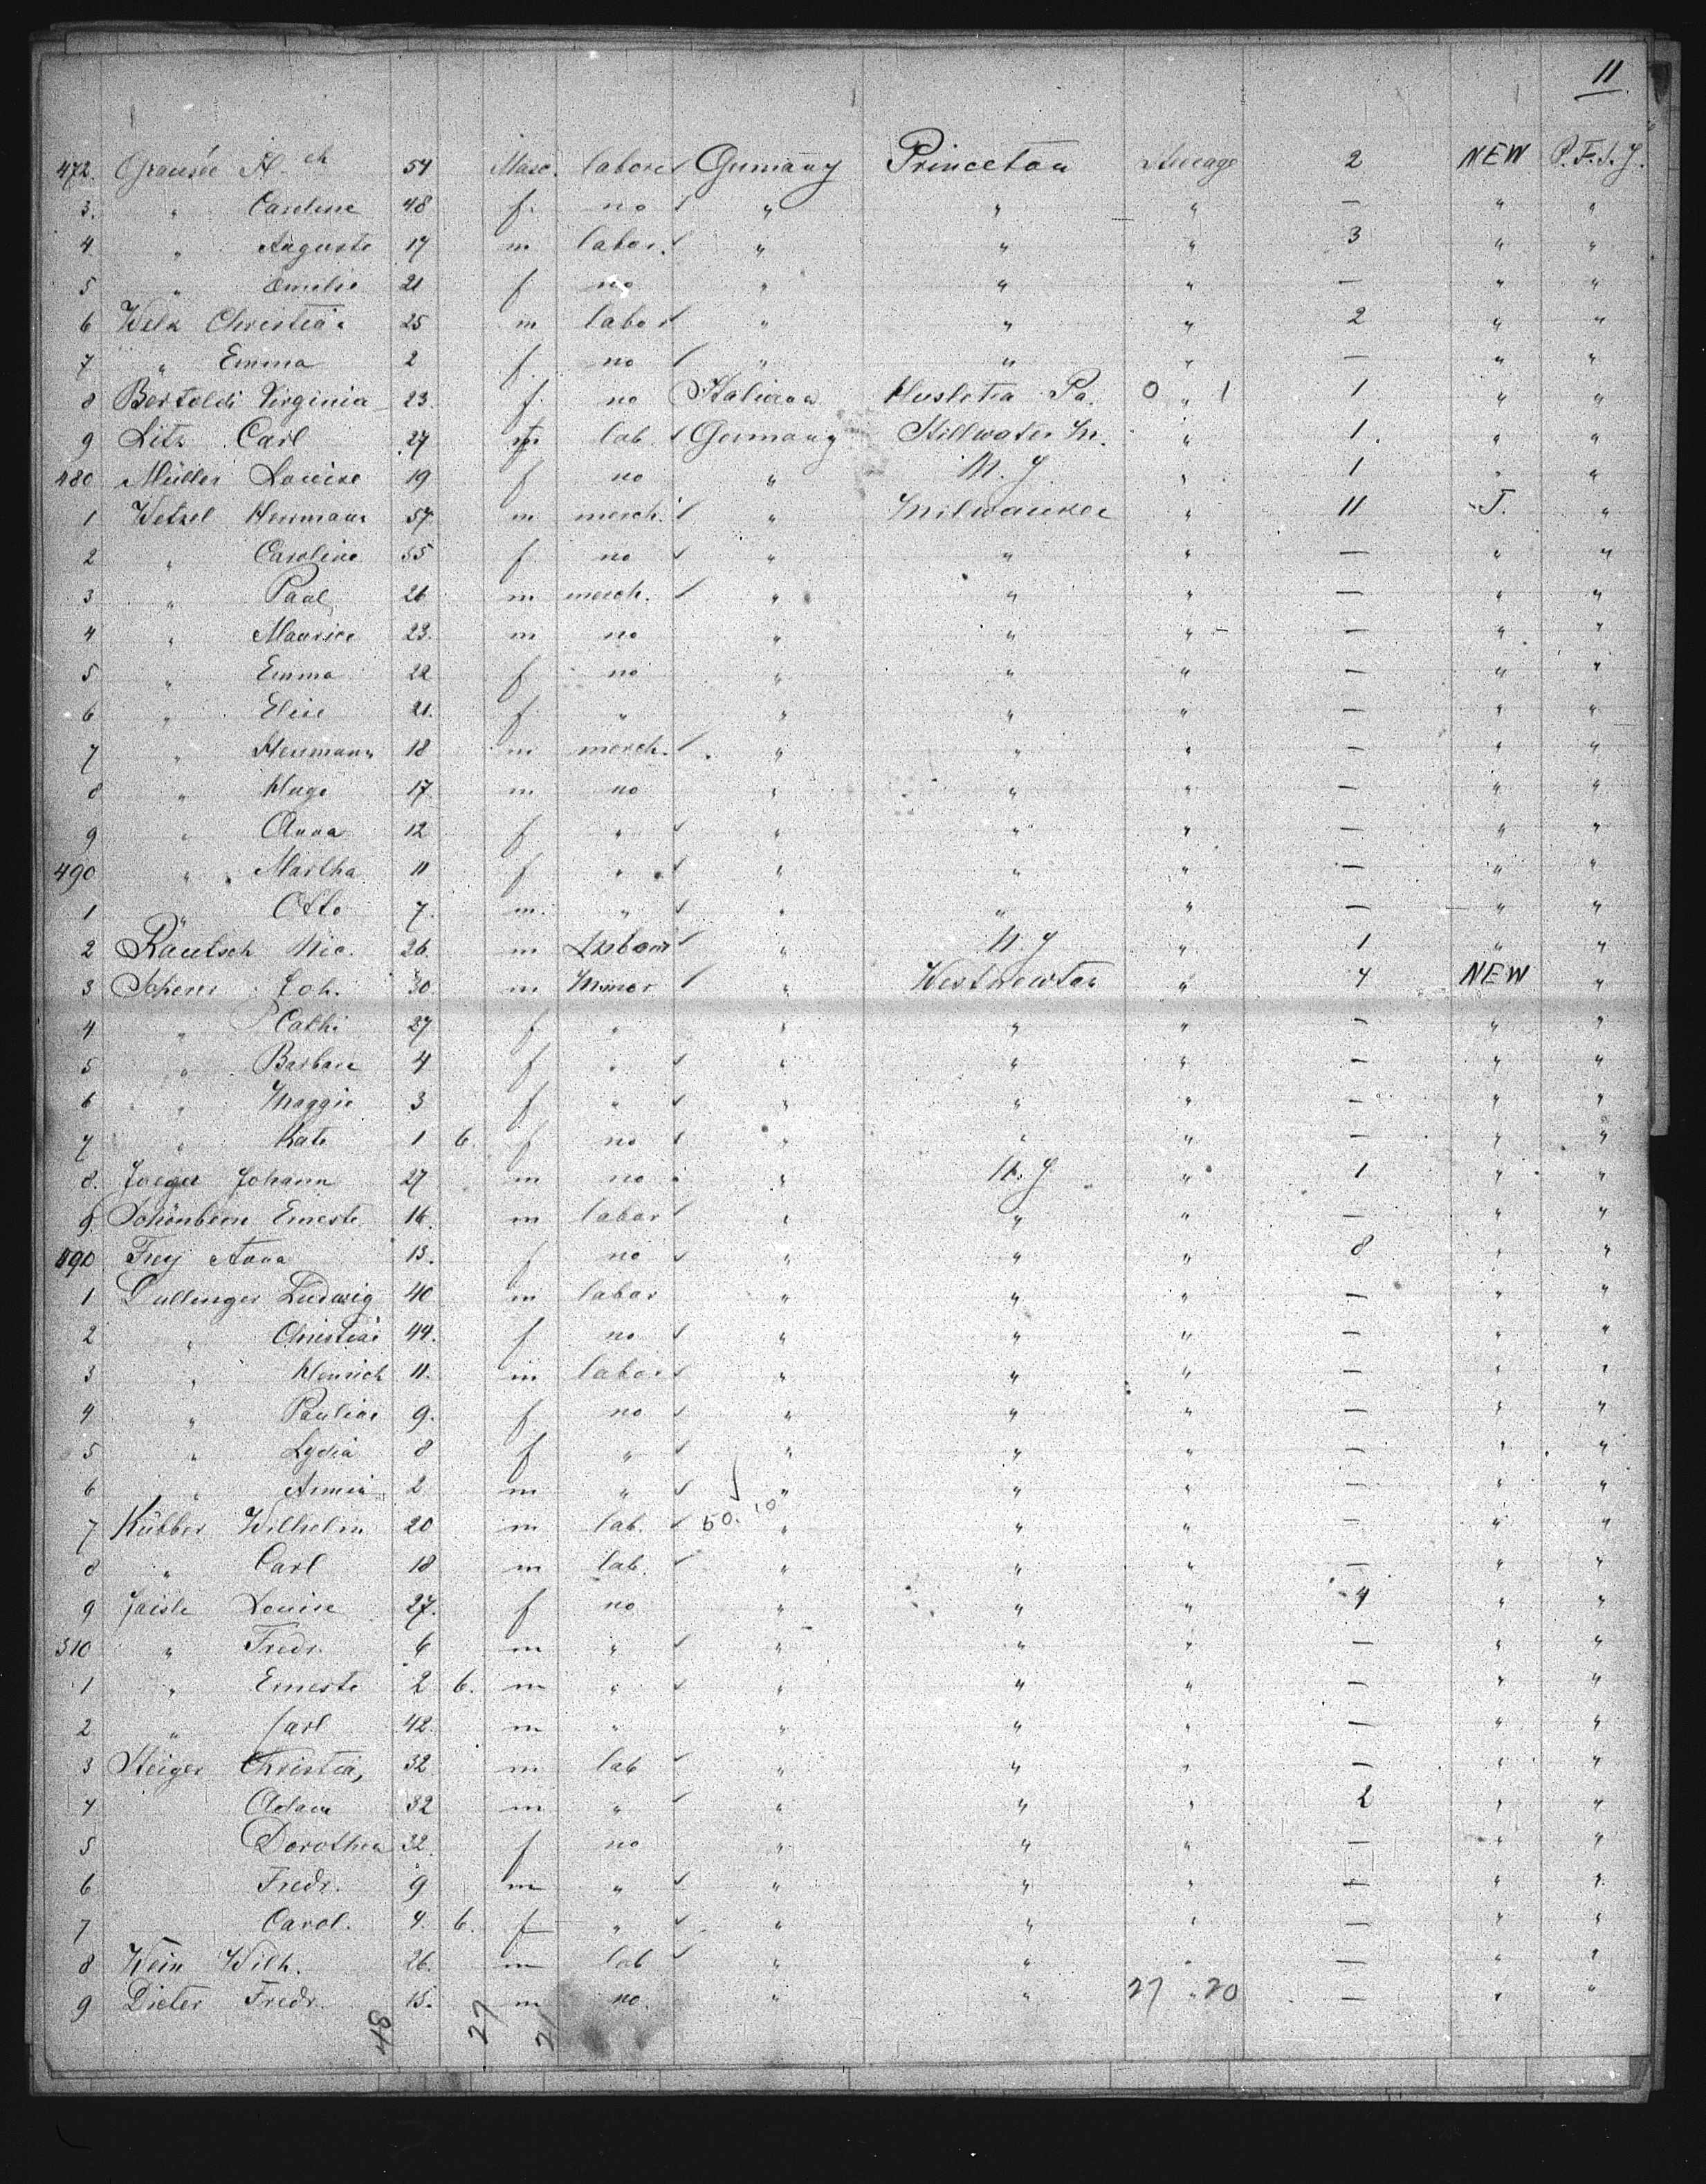 11
472. Grausée H.ch 54 Masc. labore Germany Princeton Steerage 2 NEW P.F.S.J.
3. " Caroline 48 f. no " " " — " "
4. " Auguste 17 m labor. " " " 3 " "
5 " Emilie 21 f no " " " — " "
6 Welk Christia 25 m labor " " " 2 " "
7 " Emma 2 f. no " " " — " "
8 Bertoldi Virginia 23. f. no Italiana Pa. 0 " 1 1 " "
9 Litz Carl 27 m lab. Germany Stillwater M. " 1. " "
480 Müller Louise 19 f no " N.Y. " 1 " "
1 Wetzel Hermann 57 m merch. " Milwaukee " 11 J. "
2 " Caroline 55 f. no " " " — " "
3 " Paul 26 m merch. " " " — " "
4 " Maurice 23. m no " " " — " "
5 " Emma 22 f no " " " — " "
6 " Elise 21. f. " " " " — " "
7 " Hermann 18 m merch. " " " — " "
8 " Hugo 17 m no " " " — " "
9 " Anna 12 f " " " " — " "
490 " Martha 11 f " " " " — " "
1 " Otto 7. m. " " " " — " "
2 Räutsch Nic. 26. m Labour " N.Y " 1 " "
3 Scherer Joh. 30. m Minor " Westnewton " 4 NEW "
4 " Cathi 27 f " " " " — " "
5 " Barbara 4 f " " " " — " "
6 " Maggie 3 f " " " " — " "
7 " Kate 1 6. f no " " " — " "
8. Jaeger Johann 27 m no " N.Y " 1 " "
9. Schönbein Erneste 16. m labor " " " — " "
490 Frey Anna 13. f no " " " 8 " "
1 Dullinger Ludwig 40 m labor " " " — " "
2 " Christiai 44. f no " " " — " "
3 " Heinrich 11. m labor " " " — " "
4 " Paulias 9. f no " " " — " "
5 " Lydia 8 f " " " " — " "
6 " Armin 2 m " " " " — " "
7 Kübber Wilhelm 20 m lab. 50. 10 " " " — " "
8 " Carl 18 m lab. " " " — " "
9 Jaisle Louise 27. f no " " " 4 " "
310 " Fredr. 6 m " " " " — " "
1 " Erneste 2 6. m " " " " — " "
2 " Carl 42 m " " " " — " "
3 Steiger Christia, 32 m lab " " " — " "
4 Adam 32 m " " " " 2 " "
5 Dorothea 32. f no " " " — " "
6 Fredr. 9 m " " " " — " "
7 Carol. 4. 6. f " " " " — " "
8 Wein Wilh. 26. m lab " " " — " "
9 Dieter Fredr. 15. m no. " " 27 " 20 — " "
48 27 21